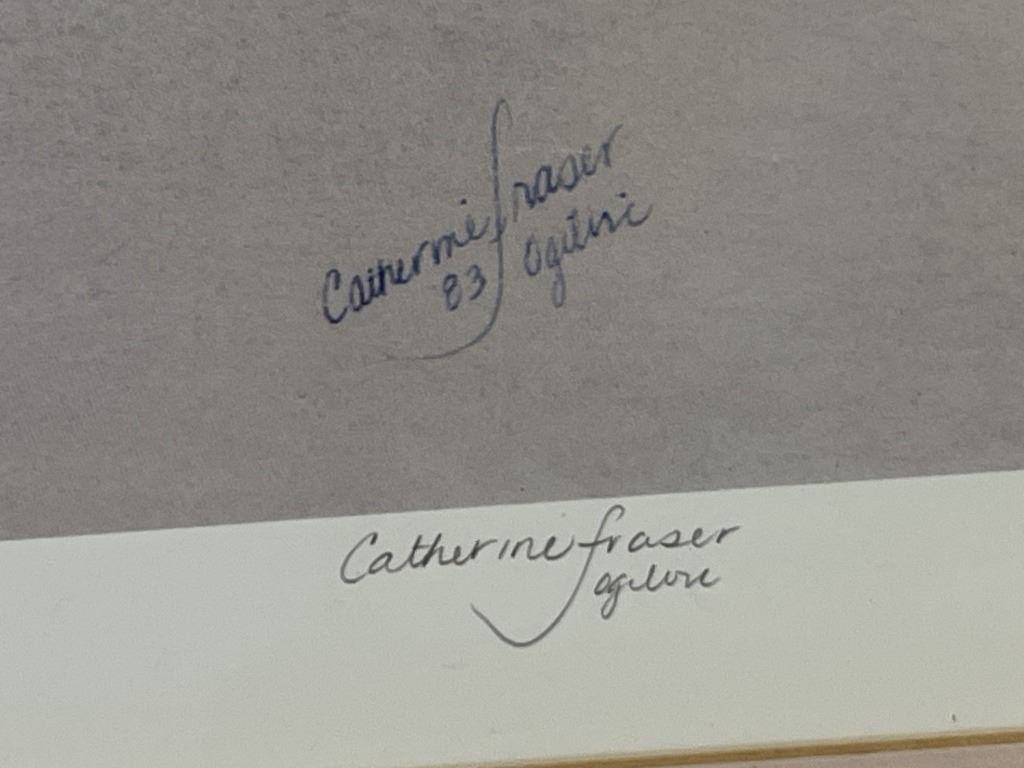 Catherine fraser
83 Ogilvie
Catherine fraser
Ogilvie